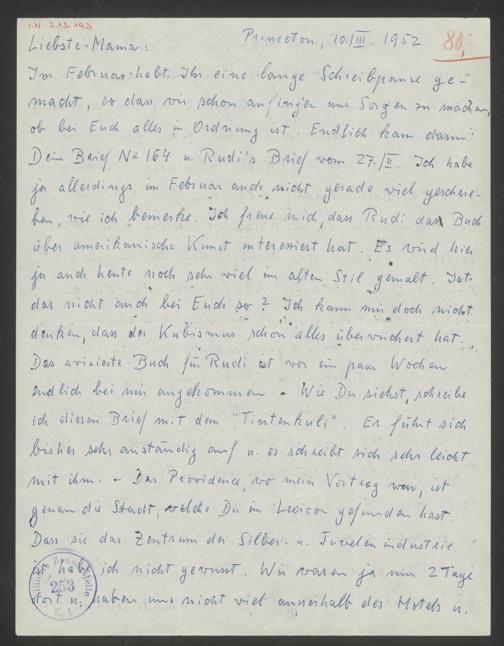 I.N. 213.193
Princeton, 10./III. 1952
80,
Liebste Mama:
Im Februar habt Ihr eine lange Schreibpause ge-
macht, so dass wir schon anfingen uns Sorgen zu machen,
ob bei Euch alles in Ordnung ist. Endlich kam dann
Dein Brief No 164 u. Rudi's Brief vom 27./II. Ich habe
ja allerdings im Februar auch nicht gerade viel geschrie-
ben, wie ich bemerke. Ich freue mich, dass Rudi das Buch
über amerikanische Kunst interessiert hat. Es wird hier
ja auch heute noch sehr viel im alten Stil gemalt. Ist
das nicht auch bei Euch so? Ich kann mir doch nicht
denken, dass der Kubismus schon alles überwuchert hat.
Das avisierte Buch für Rudi ist vor ein paar Wochen
endlich bei mir angekommen. - Wie Du siehst, schreibe
ich diesen Brief mit dem "Tintenkuli". Er führt sich
bisher sehr anständig auf u. es schreibt sich sehr leicht
mit ihm. - Das Providence, wo mein Vortrag war, ist
genau die Stadt, welche Du im Lexicon gefunden hast.
Dass sie das Zentrum der Silber- u. Juwelenindustrie
ist hab ich nicht gewusst. Wir waren ja nur 2 Tage
dort u. haben uns nicht viel ausserhalb des Hotels u.
Zensurstelle
253